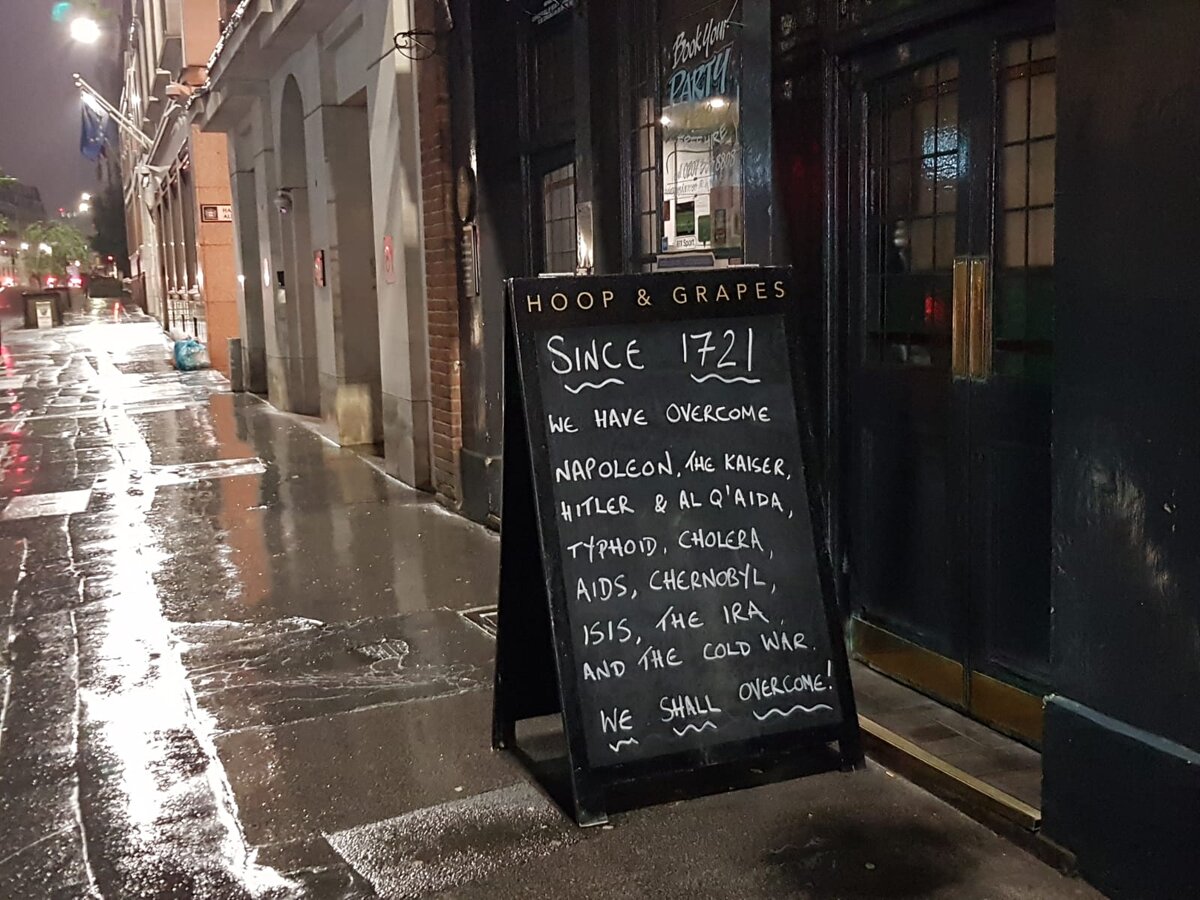 Book Your
PARTY
HOOP & GRAPES
SINCE 1721
WE HAVE OVERCOME
NAPOLEON, THE KAISER,
HITLER & AL Q'AIDA,
TYPHOID, CHOLERA,
AIDS, CHERNOBYL,
ISIS, THE IRA
AND THE COLD WAR.
WE SHALL OVERCOME!